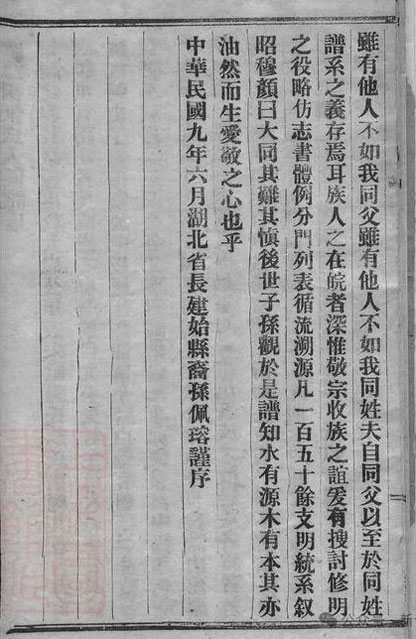 雖有他人不如我同父雖有他人不如我同姓夫自同父以至於同姓
譜系之義存焉耳族人之在皖者深惟敬宗收族之誼爰有搜討修明
之役略仿志書體例分門列表循流溯源凡一百五十餘支明統系叙
昭穆顏曰大同其難其慎後世子孫觀於是譜知水有源木有本其亦
油然而生愛敬之心也乎
中華民國九年六月湖北省長建始縣裔孫佩瑢謹序